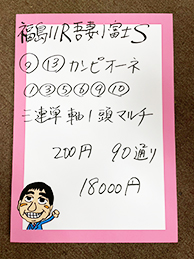 福島11R吾妻小富士S
◎ ⑬ カンピオーネ
①③⑤⑥⑨⑩
三連単 軸1頭マルチ
200円 90通り
18000円